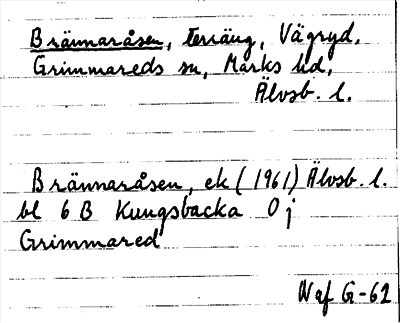 Brännaråsen, terräng, Vägryd,
Grimmareds sn, Marks hd,
Älvsb. l.
Brännaråsen, ek (1961) Älvsb. l.
bl 6 B Kungsbacka 0 j
Grimmared
Waf G-62